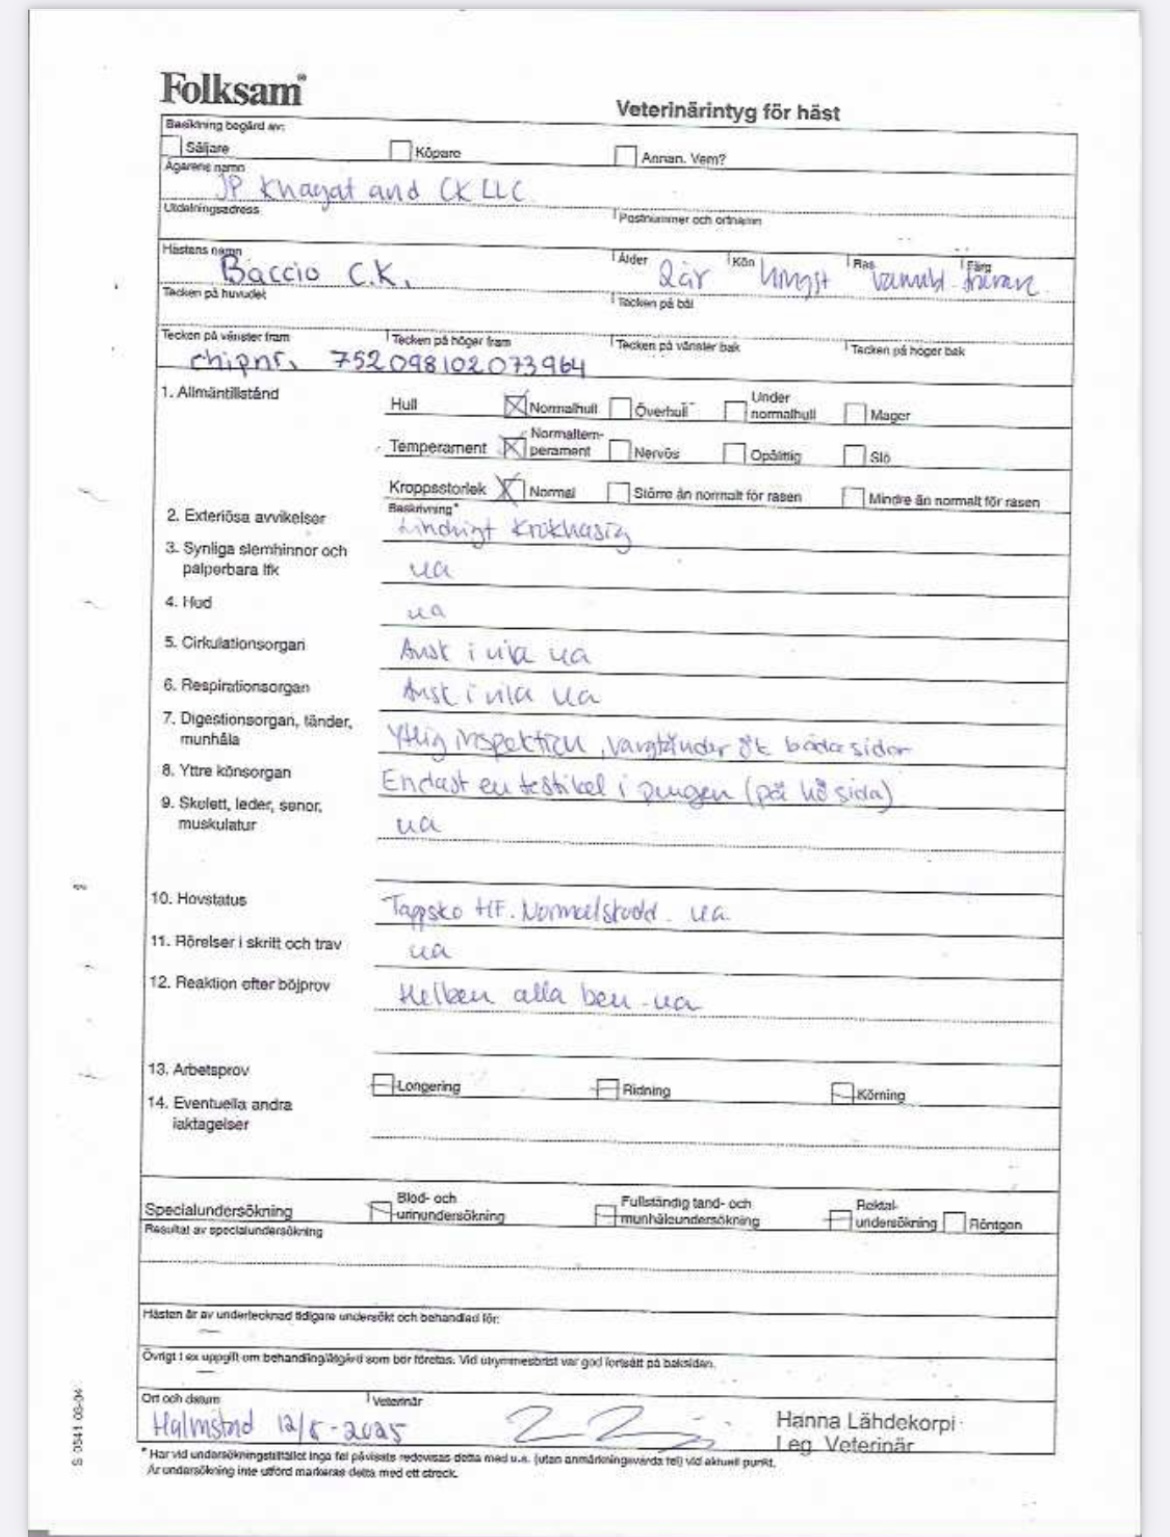 Folksam
Veterinärintyg för häst
Besiktning begärd av:
Säljare Köpare Annan. Vem?
Ägarens namn
JP Khayat and CK LLC
Utdelningsadress Postnummer och ortnamn
Hästens namn Ålder Kön Ras Färg
Baccio C.K. 2 år hingst varmbl. brun
Tecken på huvudet Tecken på bål
Tecken på vänster fram Tecken på höger fram Tecken på vänster bak Tecken på höger bak
chipnr. 752098102073964
1. Allmäntillstånd
Hull Normalhull Överhull Under normalhull Mager
Temperament Normaltemperament Nervös Opålitlig Slö
Kroppsstorlek Normal Större än normalt för rasen Mindre än normalt för rasen
Beskrivning*
2. Exteriösa avvikelser Lindrigt krokhasig
3. Synliga slemhinnor och
palperbara lfk ua
4. Hud ua
5. Cirkulationsorgan Ausk i vila ua
6. Respirationsorgan Ausk i vila ua
7. Digestionsorgan, tänder,
munhåla Ytlig inspektion, vargtänder ök båda sidor
8. Yttre könsorgan Endast en testikel i pungen (på hö sida)
9. Skelett, leder, senor,
muskulatur ua
10. Hovstatus Tappsko HF. Normalskodd. ua.
11. Rörelser i skritt och trav ua
12. Reaktion efter böjprov Helben alla ben - ua
13. Arbetsprov Longering Ridning Körning
14. Eventuella andra
iakttagelser
Specialundersökning Blod- och urinundersökning Fullständig tand- och munhåleundersökning Rektalundersökning Röntgen
Resultat av specialundersökning
Hästen är av undertecknad tidigare undersökt och behandlad för:
Övrigt t ex uppgift om behandling/åtgärd som bör företas. Vid utrymmesbrist var god fortsätt på baksidan.
Ort och datum Veterinär
Halmstad 12/5-2025
Hanna Lähdekorpi
Leg. Veterinär
* Har vid undersökningstillfället inga fel påvisats redovisas detta med u.a. (utan anmärkningsvärda fel) vid aktuell punkt.
Är undersökning inte utförd markeras detta med ett streck.
S 0541 03-04